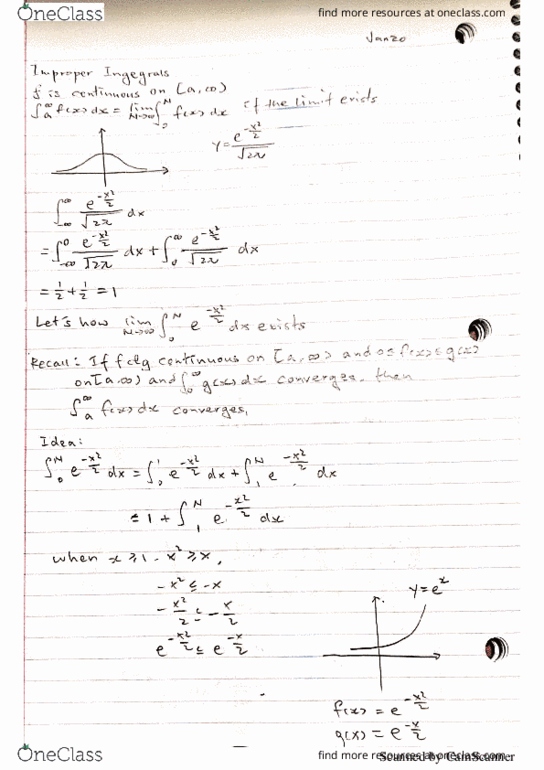 OneClass
find more resources at oneclass.com
Jan 20
Improper Ingegrals
f is continuous on [a,∞)
∫_a^∞ f(x) dx = lim_{N→∞} ∫_0^N f(x) dx if the limit exists
y = e^{-x²/2}/√2π
∫_{-∞}^∞ e^{-x²/2}/√2π dx
= ∫_{-∞}^0 e^{-x²/2}/√2π dx + ∫_0^∞ e^{-x²/2}/√2π dx
= 1/2 + 1/2 = 1
Let's how lim_{N→∞} ∫_0^N e^{-x²/2} dx exists
Recall: If f & g continuous on [a,∞) and 0≤f(x)≤g(x)
on [a,∞) and ∫_0^∞ g(x) dx converges, then
∫_a^∞ f(x) dx converges,
Idea:
∫_0^N e^{-x²/2} dx = ∫_0^1 e^{-x²/2} dx + ∫_1^N e^{-x²/2} dx
≤ 1 + ∫_1^N e^{-x²/2} dx
when x ≥ 1 - x² ≥ x,
-x² ≤ -x
-x²/2 ≤ -x/2
e^{-x²/2} ≤ e^{-x/2}
y = e^x
f(x) = e^{-x²/2}
g(x) = e^{-x/2}
OneClass
find more resources at oneclass.com
Scanned by CamScanner